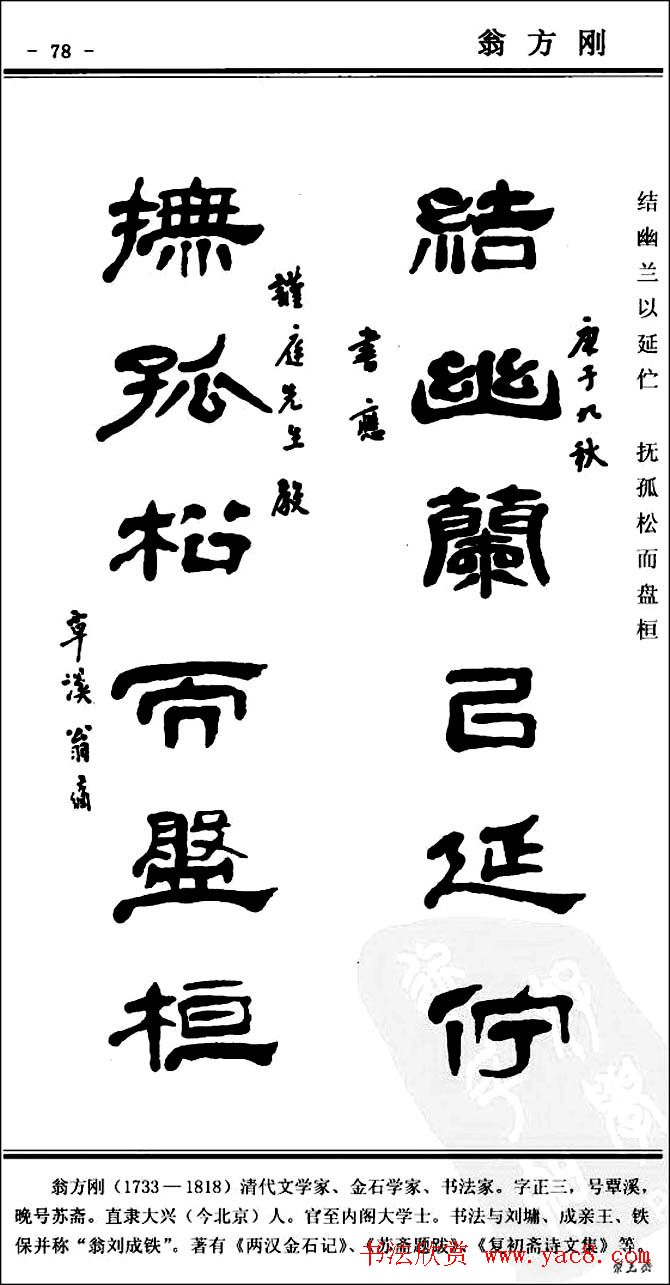 - 78 -
翁方刚
结幽兰以延伫 抚孤松而盘桓
庚子九秋
結幽蘭㠯延佇
書應
謹庭先生教
撫孤松而盤桓
覃溪翁方綱
翁方刚（1733—1818）清代文学家、金石学家、书法家。字正三，号覃溪，
晚号苏斋。直隶大兴（今北京）人。官至内阁大学士。书法与刘墉、成亲王、铁
保并称“翁刘成铁”。著有《两汉金石记》、《苏斋题跋》、《复初斋诗文集》等。
书法欣赏 www.yac8.com